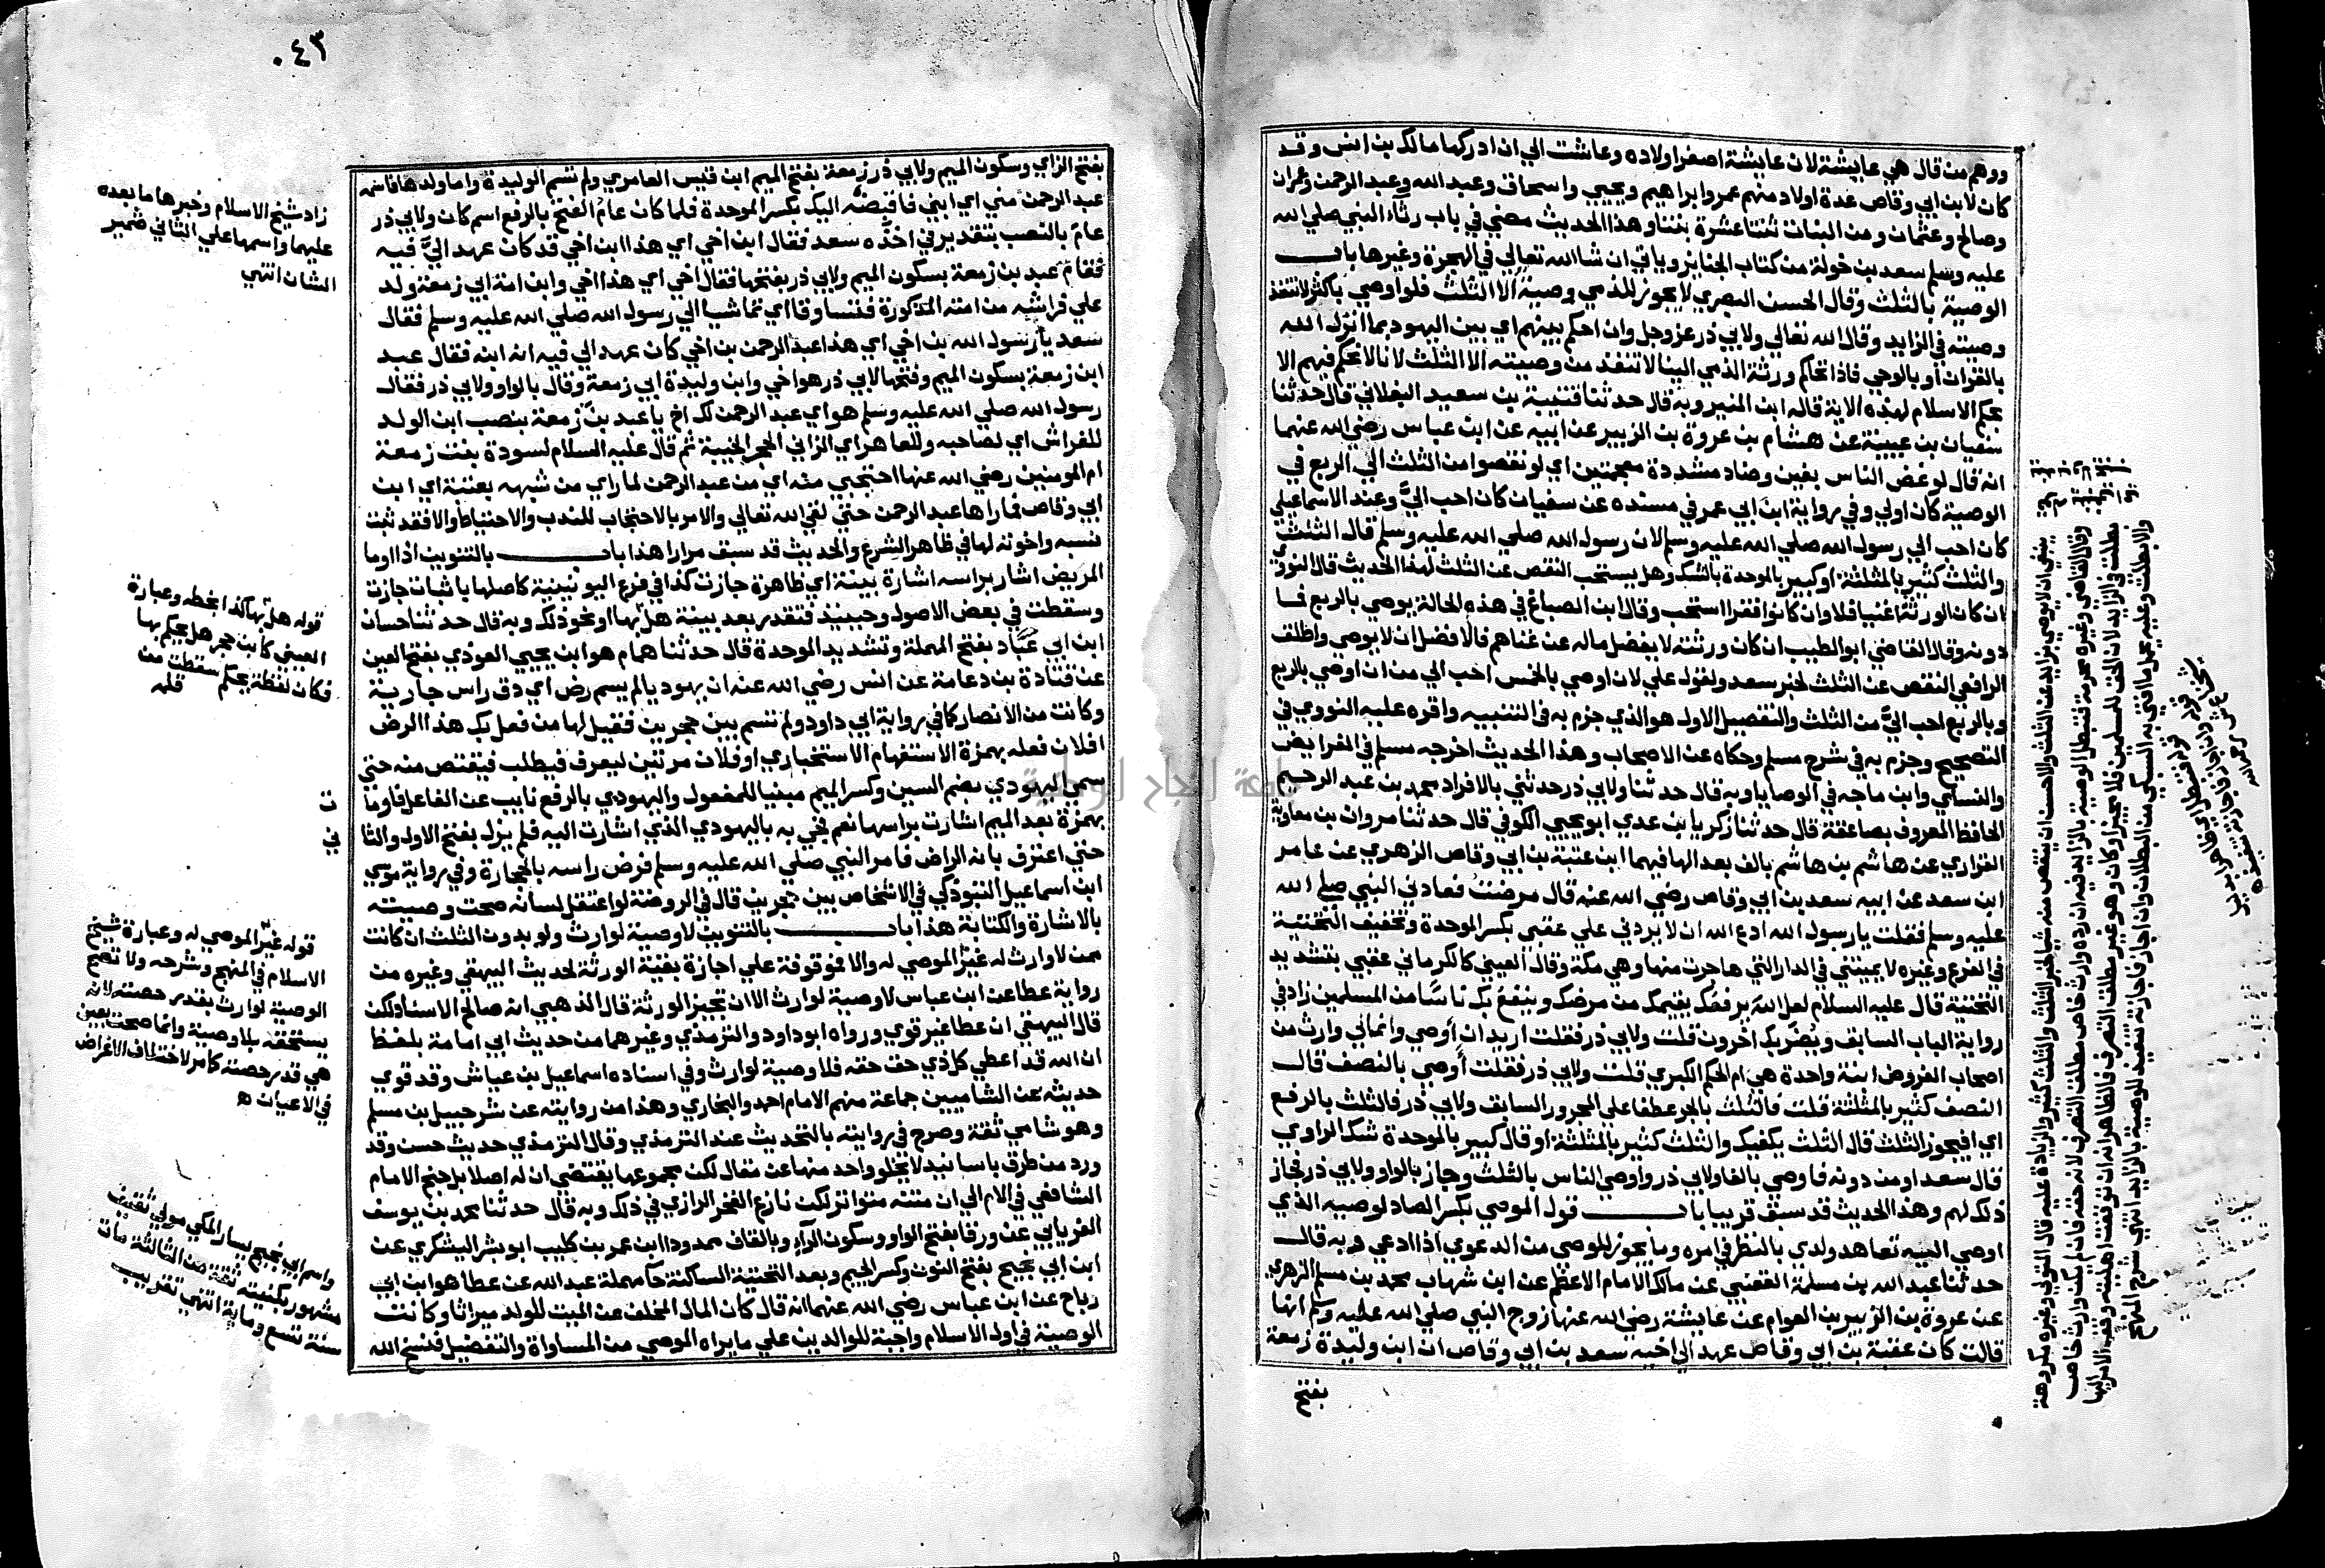 ووهم من قال هي عايشة لان عايشة اصغر اولاده وعاشت الي ان ادركها مالك بن انس وقد
كان لابن ابي وقاص عدة اولاد منهم عمر وابراهيم ويحيي واسحاق وعبد الله وعبد الرحمن وعمران
وصالح وعثمان ومن البنات ثنتا عشرة بنتا وهذا الحديث مضي في باب رثاء النبي صلي الله
عليه وسلم سعد بن خولة من كتاب الجنايز وياتي ان شا الله تعالي في الهجرة وغيرها باب
الوصية بالثلث وقال الحسن البصري لا يجوز للذمي وصية الا الثلث فلو اوصي باكثر لا تنفذ
وصيته في الزايد وقال الله تعالي ولابي ذر عز وجل وان احكم بينهم اي بين اليهود بما انزل الله
بالقران او بالوحي فاذا تحاكم ورثة الذمي الينا لا تنفذ من وصيته الا الثلث لانا لا نحكم فيهم الا
بحكم الاسلام لهذه الاية قاله ابن المنير وبه قال حدثنا قتيبة بن سعيد البغلاني قال حدثنا
سفيان بن عيينة عن هشام بن عروة بن الزبير عن ابيه عن ابن عباس رضي الله عنهما
انه قال لو غض الناس بغين وضاد مشددة معجمتين اي لو نقصوا من الثلث الي الربع في
الوصية كان اولي وفي رواية ابن ابي عمر في مسنده عن سفيان كان احب اليَّ وعند الاسماعيلي
كان احب الي رسول الله صلي الله عليه وسلم لان رسول الله صلي الله عليه وسلم قال الثلث
والثلث كثير بالمثلثة او كبير بالموحدة بالشك وهل يستحب النقص عن الثلث لهذا الحديث قال النووي
ان كان الورثة اغنيا فلا وان كانوا فقرا استحب وقال ابن الصباغ في هذه الحالة يوصي بالربع فما
دونه وقال القاضي ابو الطيب ان كان ورثته لا يفضل ماله عن غناهم فالافضل ان لا يوصي واطلق
الرافعي النقص عن الثلث لخبر سعد ولقول علي لان اوصي بالخمس احب الي من ان اوصي بالربع
وبالربع احب اليَّ من الثلث والتفصيل الاول هو الذي جزم به في التنبيه واقره عليه النووي في
التصحيح وجزم به في شرح مسلم وحكاه عن الاصحاب وهذا الحديث اخرجه مسلم في الفرايض
والنساي وابن ماجه في الوصايا وبه قال حدثنا ولابي ذر حدثني بالافراد محمد بن عبد الرحيم
الحافظ المعروف بصاعقة قال حدثنا زكريا بن عدي ابو يحيي الكوفي قال حدثنا مروان بن معاوية
الفزاري عن هاشم بن هاشم بالف بعد الها فيهما ابن عتبة بن ابي وقاص الزهري عن عامر
ابن سعد عن ابيه سعد بن ابي وقاص رضي الله عنه قال مرضت فعادني النبي صلي الله
عليه وسلم فقلت يا رسول الله ادع الله ان لا يردني علي عقبي بكسر الموحدة وتخفيف التحتية
في الفرع وغيره لا يميتني في الدار التي هاجرت منها وهي مكة وقال العيني كالكرماني عقبي بتشديد
التحتية قال عليه السلام لعل الله يرفعك يقيمك من مرضك وينفع بك ناسا من المسلمين زاد في
رواية الباب السابق ويضر بك اخرون قلت ولابي ذر فقلت اريد ان أوصي وانما لي وارث من
اصحاب الفروض ابنة واحدة هي ام الحكم الكبري قلت ولابي ذر فقلت أوصي بالنصف قال
النصف كثير بالمثلثة قلت فالثلث بالجر عطفا علي المجرور السابق ولابي ذر فالثلث بالرفع
اي افيجوز الثلث قال الثلث يكفيك والثلث كثير بالمثلثة او قال كبير بالموحدة شك الراوي
قال سعد او من دونه فاوصي بالفا ولابي ذر واوصي الناس بالثلث وجاز بالواو ولابي ذر فجاز
ذلك لهم وهذا الحديث قد سبق قريبا باب قول الموصي بكسر الصاد لوصيه الذي
اوصي اليه تعاهد ولدي بالنظر في امره وما يجوز للوصي من الدعوي اذا ادعي وبه قال
حدثنا عبد الله بن مسلمة القعنبي عن مالك الامام الاعظم عن ابن شهاب محمد بن مسلم الزهري
عن عروة بن الزبير بن العوام عن عايشة رضي الله عنها زوج النبي صلي الله عليه وسلم انها
قالت كان عتبة بن ابي وقاص عهد الي اخيه سعد بن ابي وقاص ان ابن وليدة زمعة
بفتح
ينبغي ان لا يوصي بزايد عن الثلث والاحسن ان ينقص منه شيا لخبر الثلث والثلث كثير والزيادة عليه قال المتولي وغيره مكروهة
وقال القاضي وغيره محرمة فتبطل الوصية بالزايد فيه ان رده وارث خاص مطلق التصرف لانه حقه فان لم يكن وارث خاص
بطلت في الزايد لان الحق للمسلمين فلا مجيز او كان وهو غير مطلق التصرف فالظاهر انه ان توقعت اهليته وقف الامر اليها
والا بطلت وعليه يحمل ما افتي به السبكي من البطلان وان اجاز فاجازته تنفيذ للوصية بالزايد انتهي شرح المنهج
٠٤٣
بفتح الزاي وسكون الميم ولابي ذر زمعة بفتح الميم ابن قيس العامري ولم تسم الوليدة واما ولدها فاسمه
عبد الرحمن مني اي ابني فاقبضه اليك بكسر الموحدة فلما كان عامُ الفتح بالرفع اسم كان ولابي ذر
عامَ بالنصب بتقدير في اخذه سعد فقال ابن اخي اي هذا ابن اخي قد كان عهد اليَّ فيه
فقام عبد بن زمعة بسكون الميم ولابي ذر بفتحها فقال اخي اي هذا اخي وابن امة ابي زمعة ولد
علي فراشه من امته المذكورة فتساوقا اي تماشيا الي رسول الله صلي الله عليه وسلم فقال
سعد يا رسول الله بن اخي اي هذا عبد الرحمن بن اخي كان عهد الي فيه انه ابنه فقال عبد
ابن زمعة بسكون الميم وفتحها لابي ذر هو اخي وابن وليدة ابي زمعة وقال بالواو ولابي ذر فقال
رسول الله صلي الله عليه وسلم هو اي عبد الرحمن لك اخ يا عبد بن زمعة بنصب ابن الولد
للفراش اي لصاحبه وللعاهر اي الزاني الحجر الخيبة ثم قال عليه السلام لسودة بنت زمعة
ام المومنين رضي الله عنها احتجبي منه اي من عبد الرحمن لما راي من شبهه بعتبة اي ابن
ابي وقاص فما راها عبد الرحمن حتي لقي الله تعالي والامر بالاحتجاب للندب والاحتياط والا فقد ثبت
نسبه واخوته لها في ظاهر الشرع والحديث قد سبق مرارا هذا باب بالتنوين اذا اوما
المريض اشار براسه اشارة بينة اي ظاهرة جازت كذا في فرع اليونينية كاصلها باثبات جازت
وسقطت في بعض الاصول وحينيذ فتقدر بعد بينة هل بها او نحو ذلك وبه قال حدثنا حسان
ابن ابي عبَّاد بفتح المهملة وتشديد الموحدة قال حدثنا همام هو ابن يحيي العوذي بفتح العين
عن قتادة بن دعامة عن انس رضي الله عنه ان يهوديا لم يسم رض اي دق راس جارية
وكانت من الانصار كما في رواية ابي داود ولم تسم بين حجرين فقيل لها من فعل بك هذا الرض
افلان فعله بهمزة الاستفهام الاستخباري او فلان مرتين ليعرف فيطلب فيقتص منه حتي
سمي اليهودي بضم السين وكسر الميم مبنيا للمفعول واليهودي بالرفع نايب عن الفاعل فاوما
بهمزة بعد الميم اشارت براسها نعم فجي به باليهودي الذي اشارت اليه فلم يزل بفتح الاول والثا
حتي اعترف بانه الراض فامر النبي صلي الله عليه وسلم فرض راسه بالحجارة وفي رواية موسي
ابن اسماعيل التبوذكي في الاشخاص بين حجرين قال في الروضة لو اعتقل لسانه صحت وصيته
بالاشارة والكتابة هذا باب بالتنوين لا وصية لوارث ولو بدون الثلث ان كانت
ممن لا وارث له غير الموصي له والا فموقوفة علي اجازة بقية الورثة لحديث البيهقي وغيره من
رواية عطا عن ابن عباس لا وصية لوارث الا ان تجيز الورثة قال الذهبي انه صالح الاسناد لكن
قال البيهقي ان عطا غير قوي ورواه ابو داود والترمذي وغيرهما من حديث ابي امامة بلفظ
ان الله قد اعطي كل ذي حق حقه فلا وصية لوارث وفي اسناده اسماعيل بن عياش وقد قوي
حديثه عن الشاميين جماعة منهم الامام احمد والبخاري وهذا من روايته عن شرحبيل بن مسلم
وهو شامي ثقة وصرح في روايته بالتحديث عند الترمذي وقال الترمذي حديث حسن وقد
ورد من طرق باسانيد لا يخلو واحد منها عن مقال لكن مجموعها يقتضي ان له اصلا بل جنح الامام
الشافعي في الام الي ان متنه متواتر لكن نازع الفخر الرازي في ذلك وبه قال حدثنا محمد بن يوسف
الفريابي عن ورقا بفتح الواو وسكون الراء وبالقاف ممدودا ابن عمر بن كليب ابو بشر اليشكري عن
ابن ابي نجيح بفتح النون وكسر الجيم وبعد التحتية الساكنة حا مهملة عبد الله عن عطا هو ابن ابي
رباح عن ابن عباس رضي الله عنهما انه قال كان المال المخلف عن الميت للولد ميراثا وكانت
الوصية في اول الاسلام واجبة للوالدين علي ما يراه الموصي من المساواة والتفضيل فنسخ الله
زاد شيخ الاسلام وخبرها ما بعده
عليهما واسمها علي الثاني ضمير
الشان انتهي
قوله هل بها كذا بخطه وعبارة
العيني كابن حجر هل يحكم بها
فكان لفظة يحكم سقطت من
قلمه
ني
قوله غير الموصي له وعبارة شيخ
الاسلام في المنهج وشرحه ولا تصح
الوصية لوارث بقدر حصته لانه
يستحقه بلا وصية وانما صحت بعين
هي قدر حصته كامر لاختلاف الاغراض
في الاعيان ه
واسم ابي نجيح يسار المكي مولي ثقيف
مشهور بكنيته ثقة من الثالثة مات
سنة تسع وماية انتهي تقريب